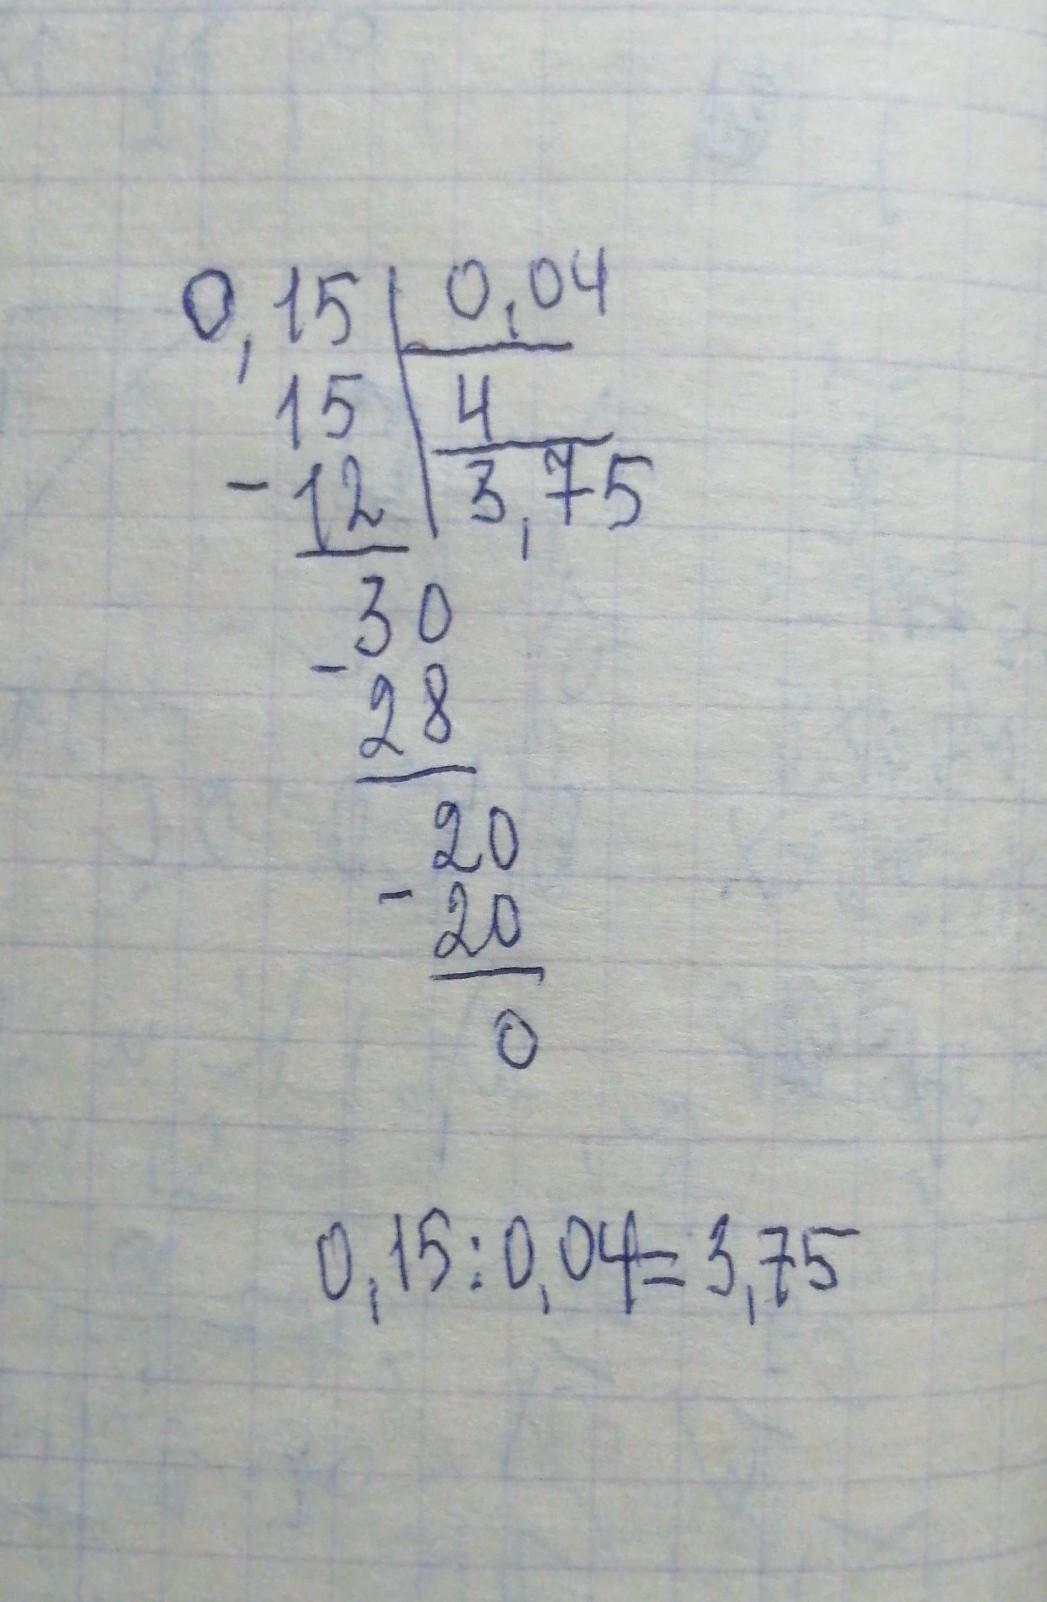 0,15 0,04
15 4
-12 3,75
30
-
28
20
-
20
0
0,15:0,04=3,75